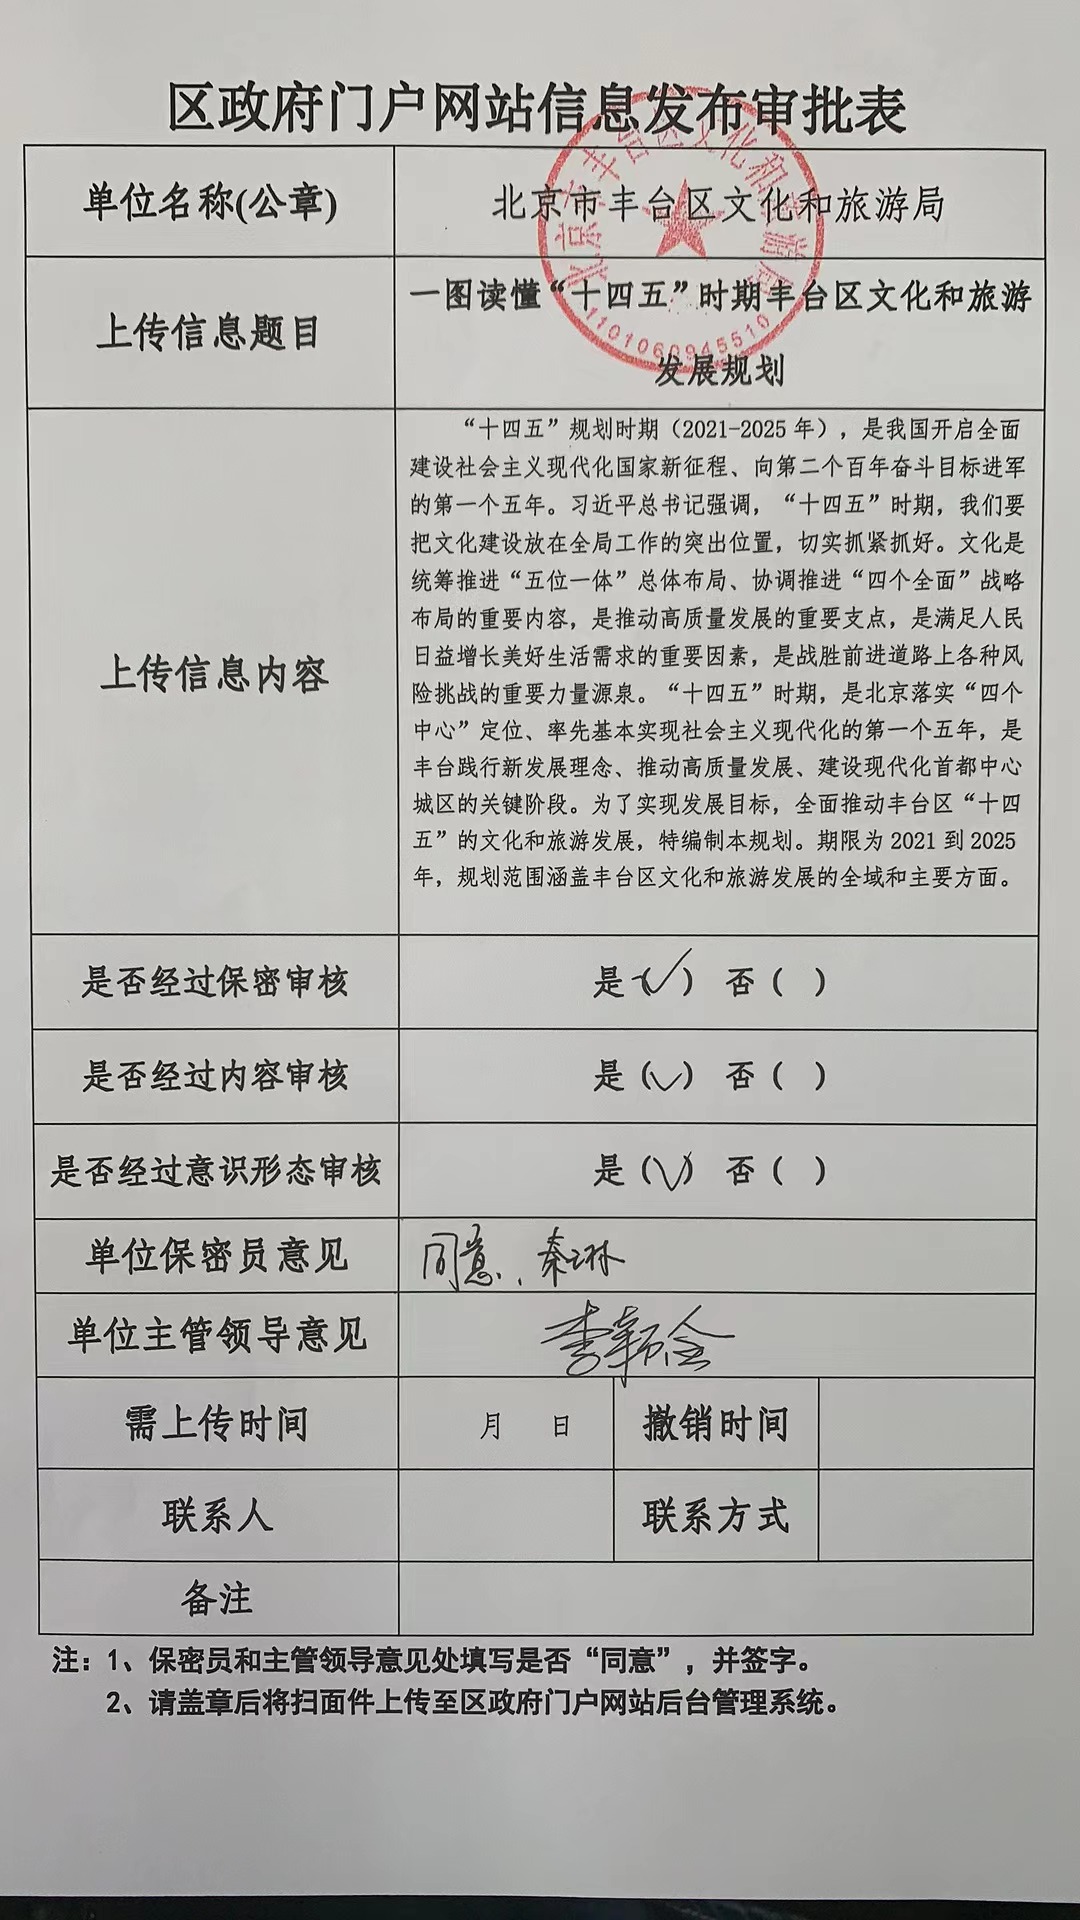 区政府门户网站信息发布审批表
单位名称(公章)
北京市丰台区文化和旅游局
北京市丰台区文化和旅游局
1101060945510
上传信息题目
一图读懂“十四五”时期丰台区文化和旅游
发展规划
上传信息内容
“十四五”规划时期（2021-2025年），是我国开启全面
建设社会主义现代化国家新征程、向第二个百年奋斗目标进军
的第一个五年。习近平总书记强调，“十四五”时期，我们要
把文化建设放在全局工作的突出位置，切实抓紧抓好。文化是
统筹推进“五位一体”总体布局、协调推进“四个全面”战略
布局的重要内容，是推动高质量发展的重要支点，是满足人民
日益增长美好生活需求的重要因素，是战胜前进道路上各种风
险挑战的重要力量源泉。“十四五”时期，是北京落实“四个
中心”定位、率先基本实现社会主义现代化的第一个五年，是
丰台践行新发展理念、推动高质量发展、建设现代化首都中心
城区的关键阶段。为了实现发展目标，全面推动丰台区“十四
五”的文化和旅游发展，特编制本规划。期限为2021到2025
年，规划范围涵盖丰台区文化和旅游发展的全域和主要方面。
是否经过保密审核
是（✓） 否（ ）
是否经过内容审核
是（✓） 否（ ）
是否经过意识形态审核
是（✓） 否（ ）
单位保密员意见
同意、秦琳
单位主管领导意见
需上传时间
月 日
撤销时间
联系人
联系方式
备注
注：1、保密员和主管领导意见处填写是否“同意”，并签字。
2、请盖章后将扫面件上传至区政府门户网站后台管理系统。